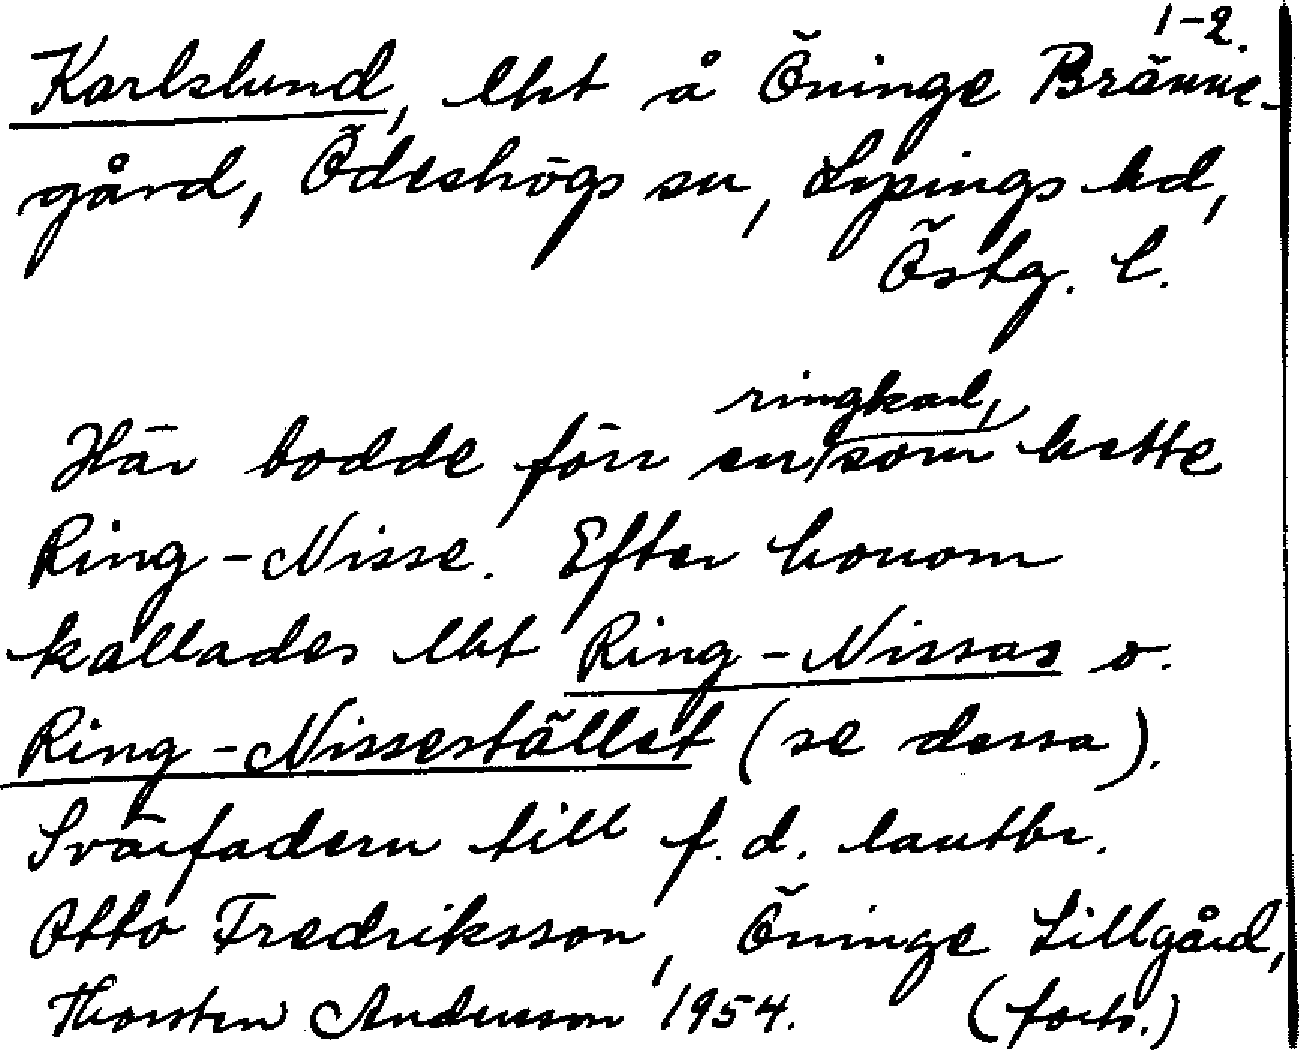 1-2.
Karlslund, lht å Öninge Bränne-
gård, Ödeshögs sn, Lysings hd,
Östg. l.
ringkarl,
Här bodde förr en som hette
Ring-Nisse. Efter honom
kallades lht Ring-Nissas o.
Ring-Nissestället (se dessa).
Svärfadern till f.d. lantbr.
Otto Fredriksson, Öninge Lillgård,
Thorsten Andersson 1954. (forts.)